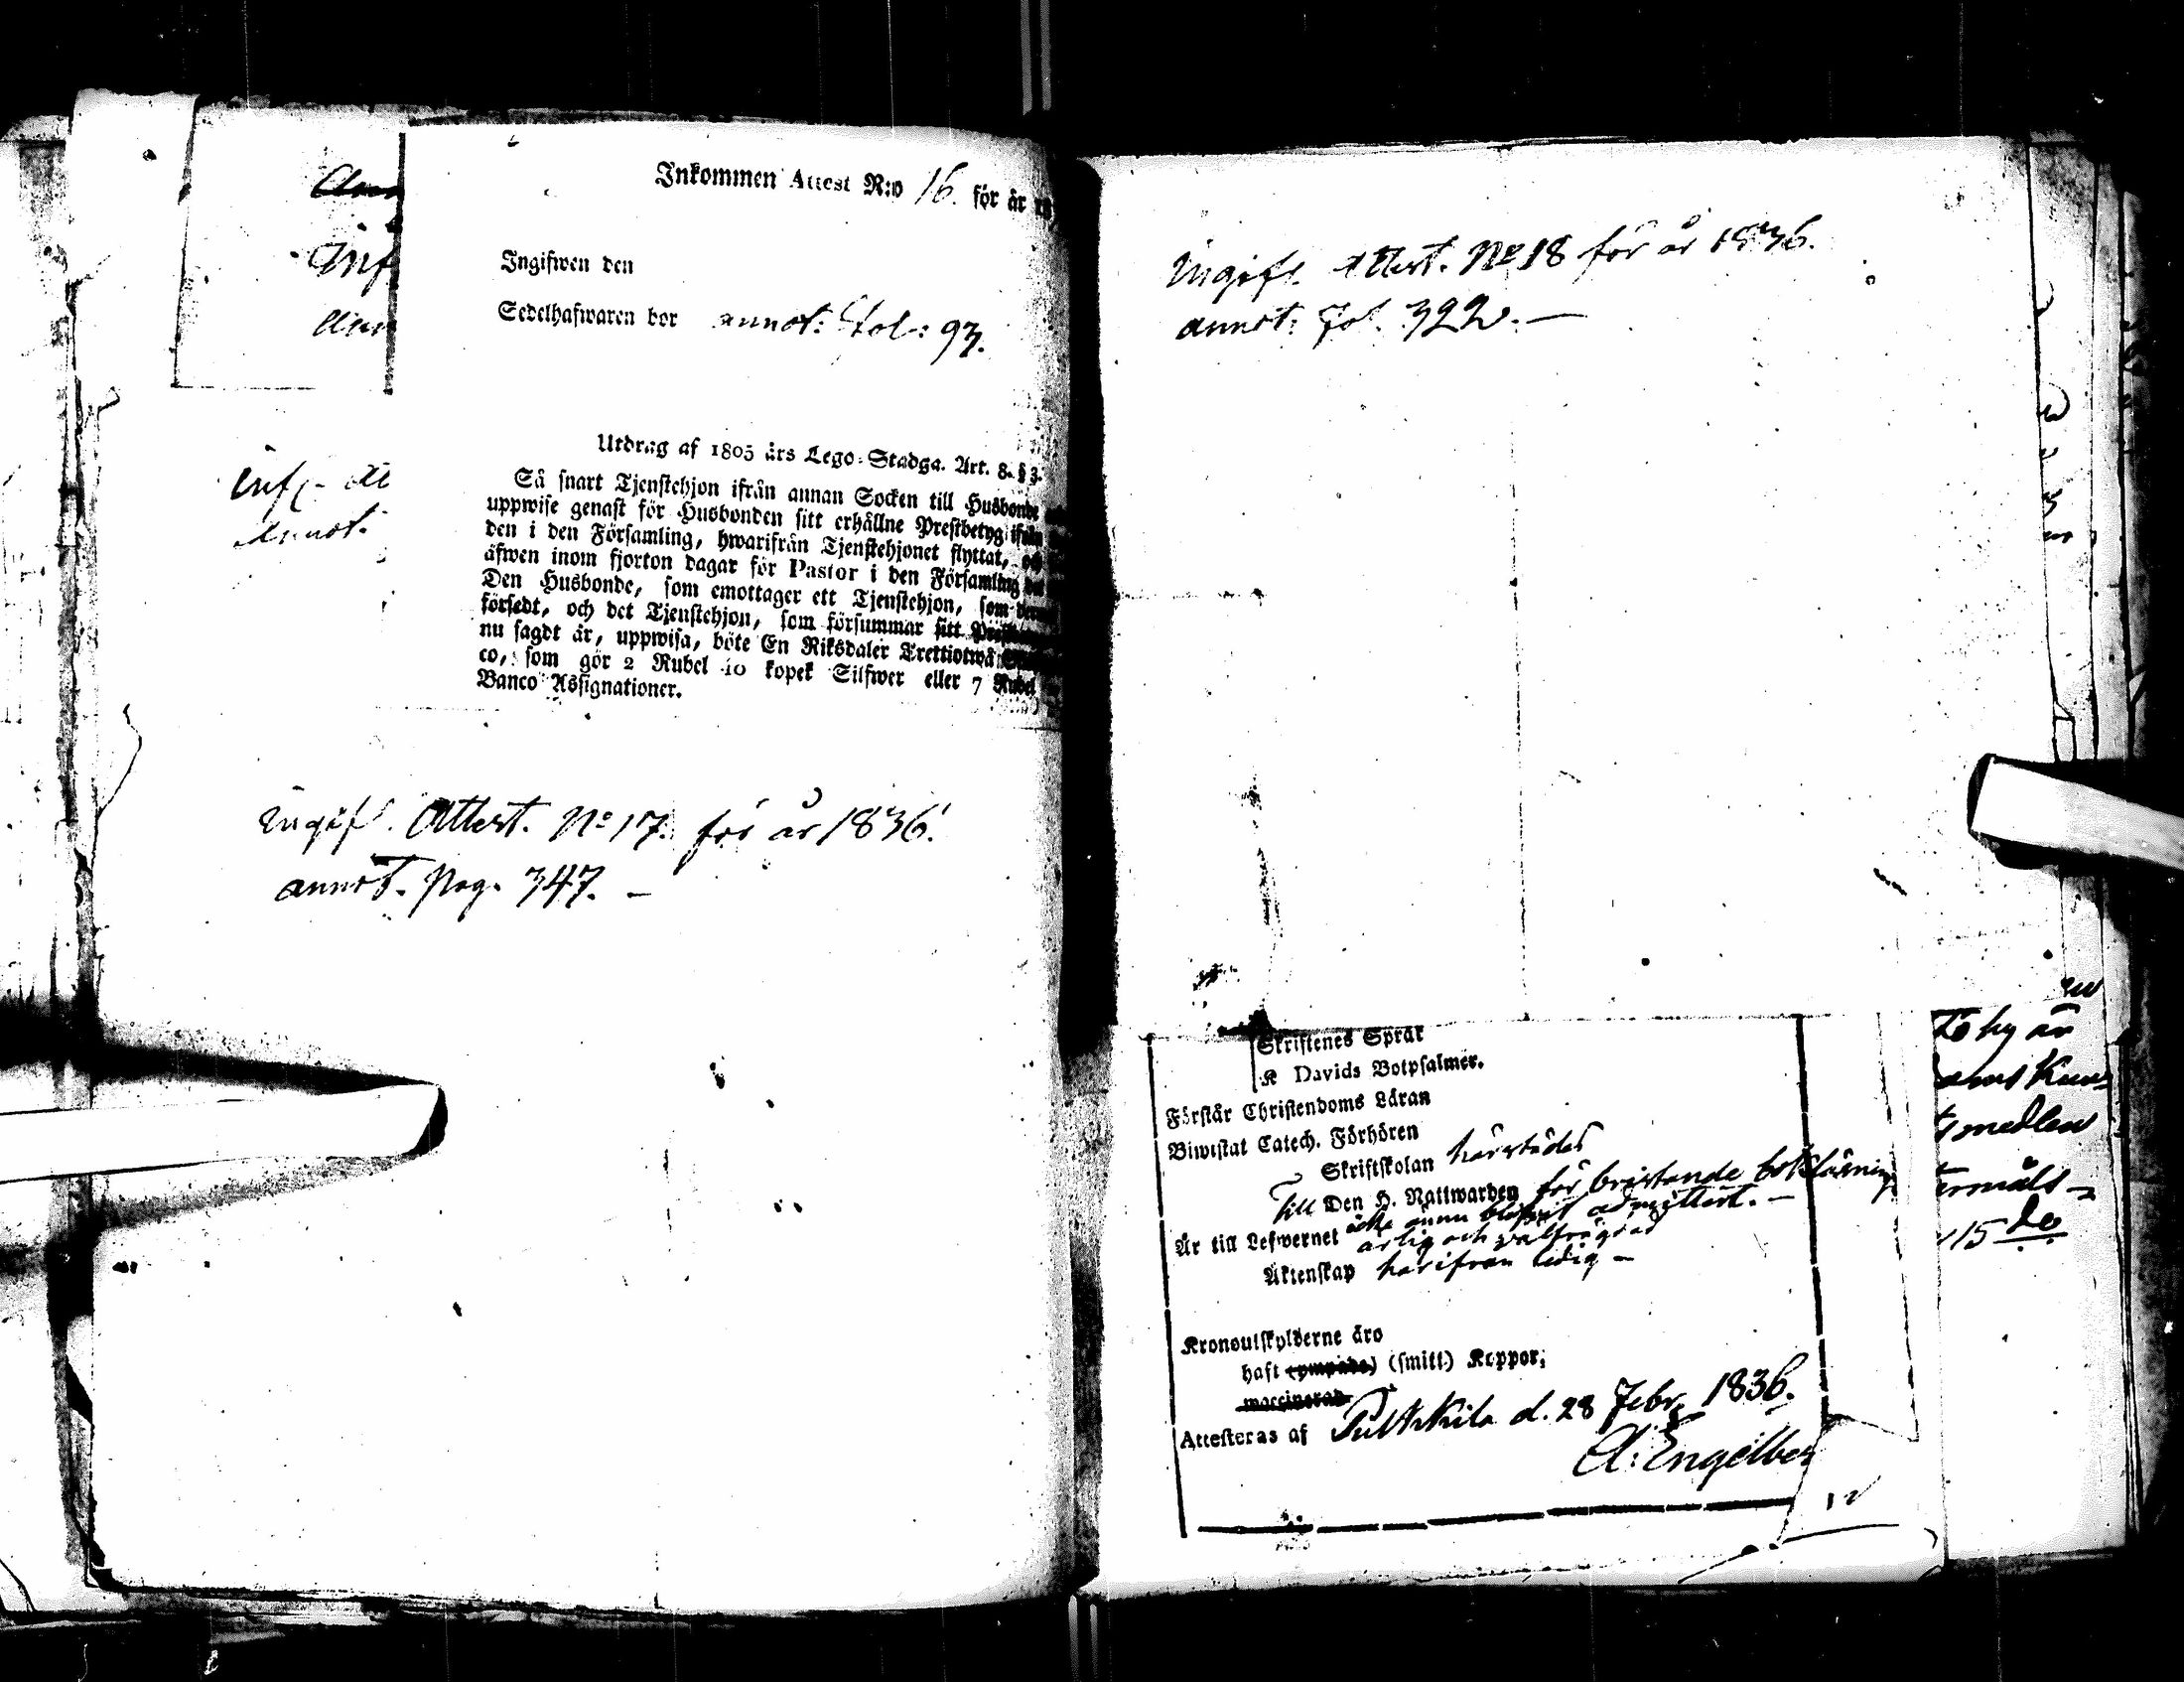 Inkommen Attest N:o 16. för år
Ingifwen den
Sedelhafwaren bor annot: fol: 93.
Utdrag af 1805 års Lego-Stadga. Art. 8. § 3.
Så snart Tjenstehjon ifrån annan Socken till Husbonde
uppwise genast för Husbonden sitt erhållne Prestbetyg ifrån
den i den Församling, hwarifrån Tjenstehjonet flyttat, och
äfwen inom fjorton dagar för Pastor i den Församling
Den Husbonde, som emottager ett Tjenstehjon, som
försedt, och det Tjenstehjon, som försummar sitt
nu sagdt är, uppwisa, böte En Riksdaler Trettiotwå
co, som gör 2 Rubel 40 kopek Silfwer eller 7 Rubel
Banco Assignationer.
annot.
Ingif. Attest. No 17. för år 1836.
annot. Pag. 347. —
Ingif. Attest. No 18 för år 1836.
annot: Fol. 322. —
Skriftenes Språk
K Davids Botpsalmer.
Förstår Christendoms Läran
Biwistat Catech. Förhören
Skriftskolan härstädes
Till Den H. Nattwarden för bristande bokläsning
icke ännu blifvit admittert. —
Är till Lefwernet ärlig och välfrägdad
Äktenskap härifrån ledig —
Kronoutskylderne äro
haft (ympade) (smitt) Koppor,
waccinerad
Attesteras af Pulkkila d. 28 Febr. 1836.
A: Engelber
medlen
15 de